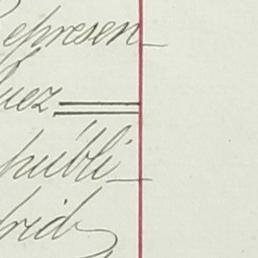 Represen_
uez
públi_
drid